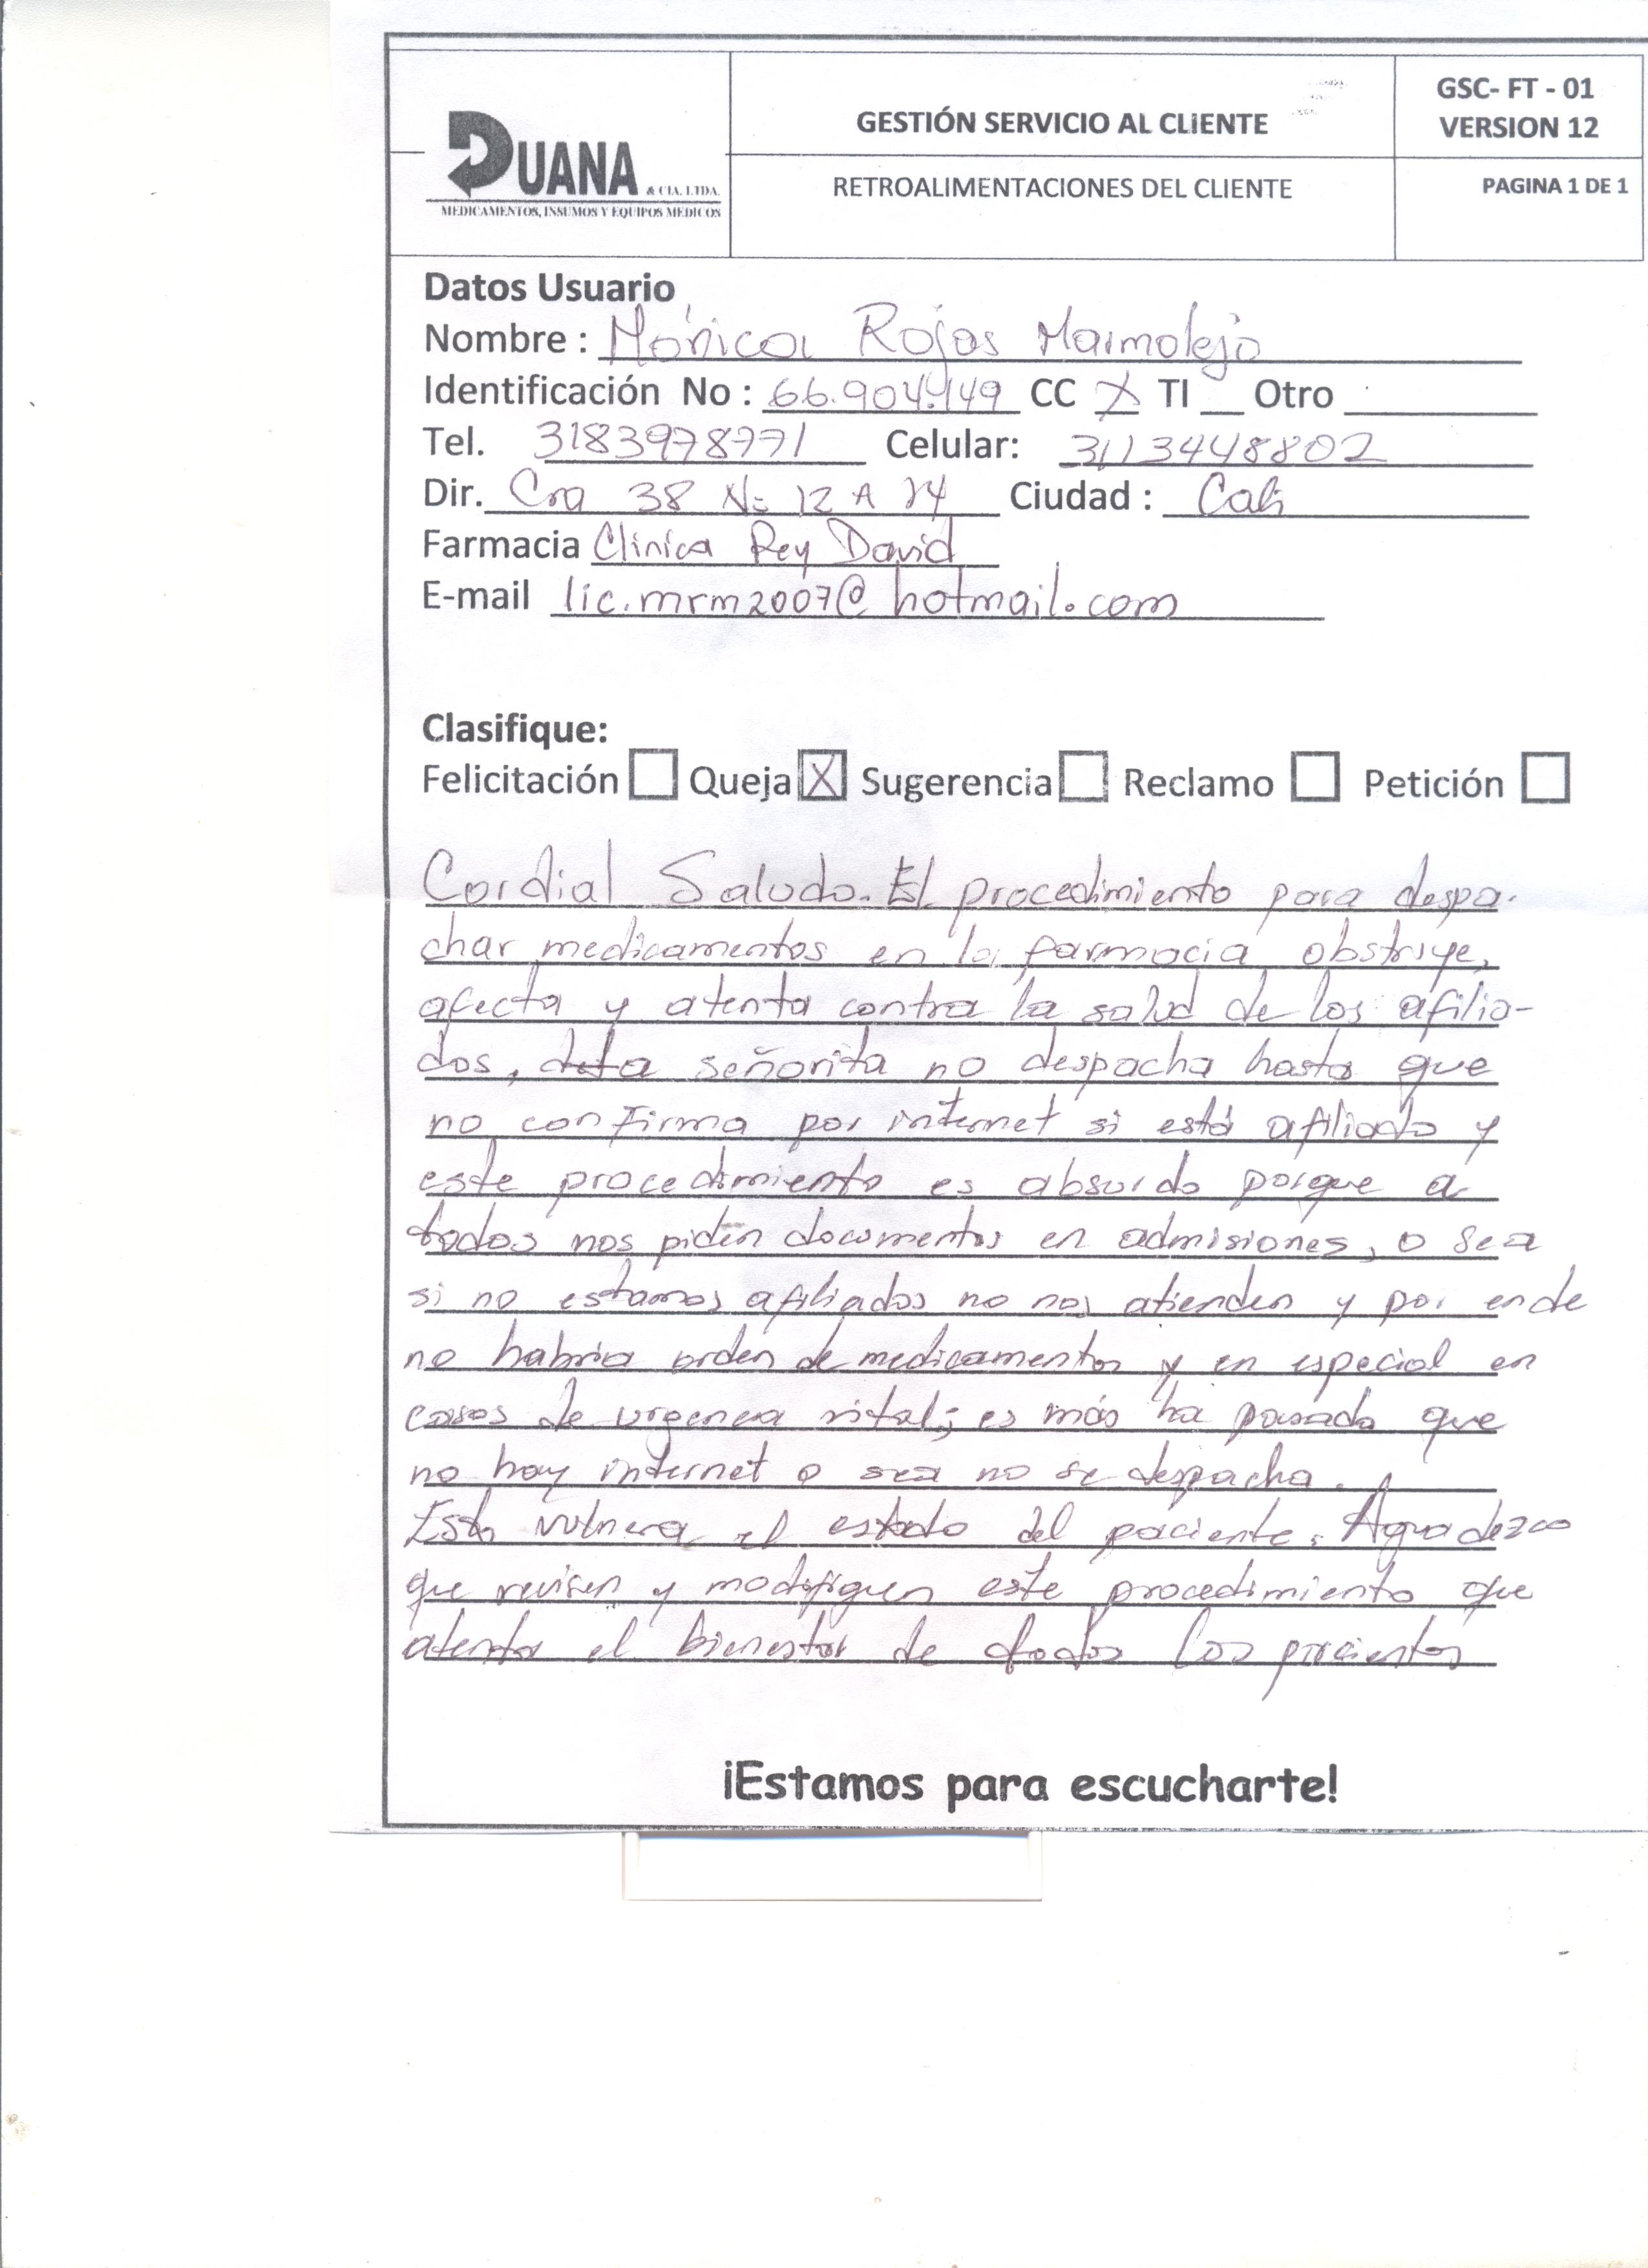 DUANA & CIA. LTDA.
MEDICAMENTOS, INSUMOS Y EQUIPOS MEDICOS
GESTIÓN SERVICIO AL CLIENTE
RETROALIMENTACIONES DEL CLIENTE
GSC- FT - 01
VERSION 12
PAGINA 1 DE 1
Datos Usuario
Nombre : Mónica Rojas Marmolejo
Identificación No : 66.904.149 CC X TI __ Otro
Tel. 3183978771 Celular: 3113448802
Dir. Cra 38 No 12 A 74 Ciudad : Cali
Farmacia Clínica Rey David
E-mail lic.mrm2007@hotmail.com
Clasifique:
Felicitación Queja X Sugerencia Reclamo Petición
Cordial Saludo. El procedimiento para despa-
char medicamentos en la farmacia obstruye,
afecta y atenta contra la salud de los afilia-
dos, la señorita no despacha hasta que
no confirma por internet si está afiliado y
este procedimiento es absurdo porque a
todos nos piden documentos en admisiones, o sea
si no estamos afiliados no nos atienden y por ende
no habria orden de medicamentos y en especial en
casos de urgencia vital; es más ha pasado que
no hay internet o sea no se despacha.
Esto vulnera el estado del paciente. Agradezco
que revisen y modifiquen este procedimiento que
atenta el bienestar de todos los pacientes
¡Estamos para escucharte!